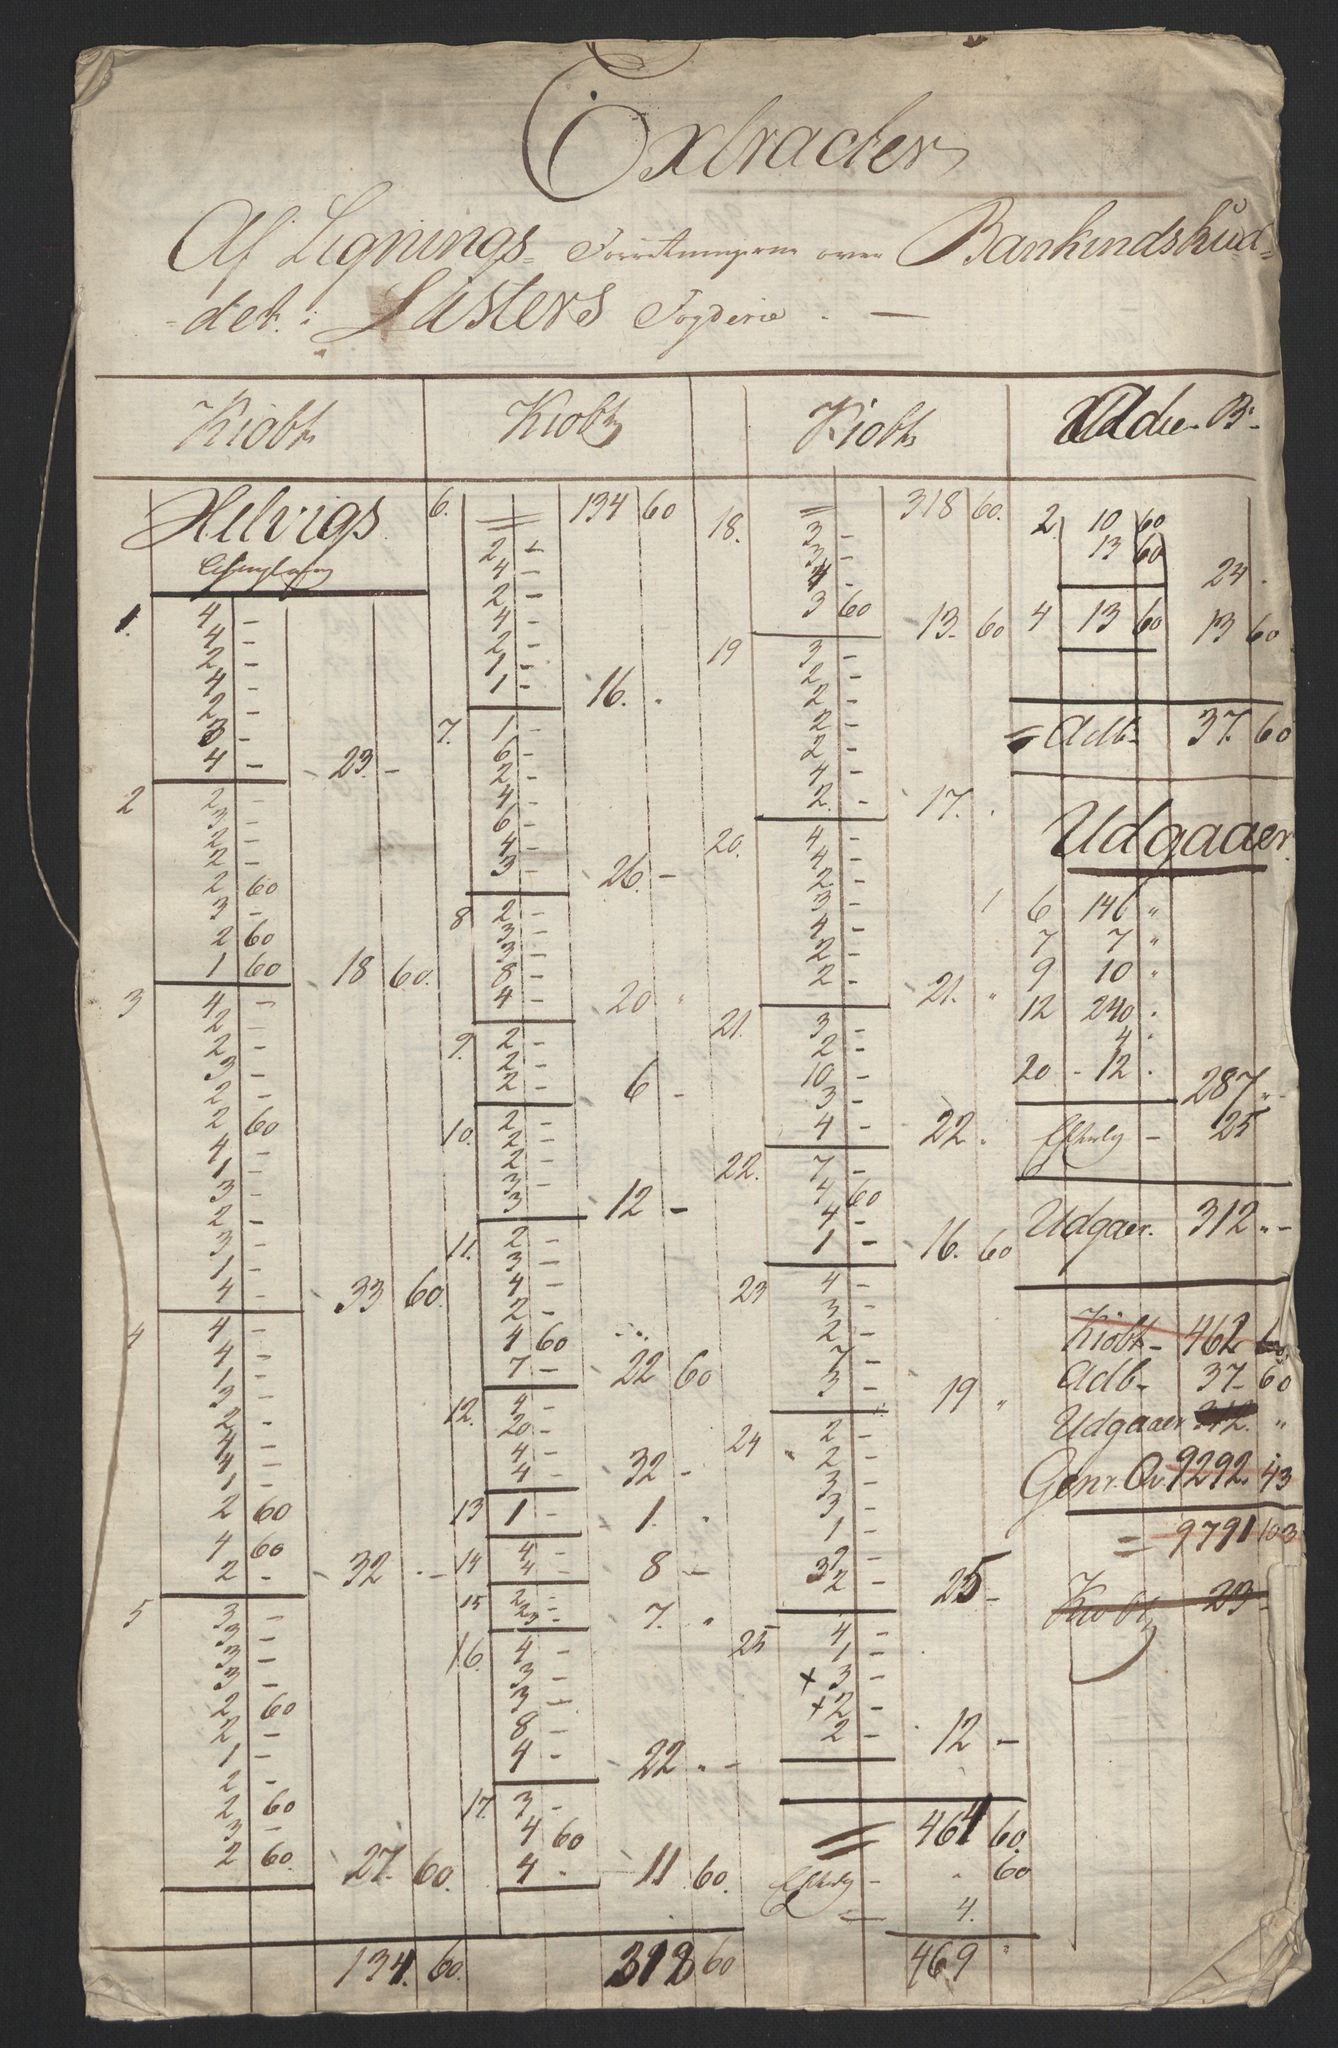 Extracter
Af Lignings- Forretningerne over Bankindskud-
det i Listers Fogderie
Kiøbt
Helvigs
1.
4 -
4 -
2 -
4 -
2 -
3 -
4 - 23 -
2
2 -
3 -
2 -
2 -
2 60
3 -
2 60
1 60 18 60.
3
4 -
2 -
2 -
3 -
2 -
2 60
4 -
1 -
3 -
2 -
3 -
1 -
4 - 33 60.
4
4 -
4 -
1 -
3 -
2 -
4 -
4 -
1 -
2 60
4 60
2 - 32 -
5
3 -
3 -
3 -
3 -
2 60
2 -
1 -
2 -
2 60
3 -
2 60. 27. 60.
134. 60.
Kiøbt
6. = 134 60
2 -
4 -
2 -
4 -
2 -
1 -
1 - 16. "
7.
1 -
6 -
2 -
4 -
6 -
4 -
3 - 26 -
8
2 -
3 -
3 -
8 -
4 - 20 "
9.
2 -
2 -
2 - 6 -
10.
2 -
2 -
2 -
3 -
3 - 12 -
11.
2 -
3 -
4 -
2 -
4 60
7 - 22 60
12.
4 -
20 -
4 -
4 - 32 -
13 1 - 1. "
14
4 -
4 - 8 -
15
2 -
2 -
3 - 7. "
16.
4 -
3 -
3 -
8 -
4 - 22 " -
17.
3 -
4 60
4 - 11 60.
318 60
Kiøbt
= 318 60.
18.
3 -
3 -
4 -
3 60 13 60
19
3 -
2 -
2 -
2 -
2 -
4 -
2 - 17. "
20.
4 -
4 -
2 -
3 -
4 -
2 -
2 - 21. "
21.
3 -
2 -
10 -
3 -
4 - 22 "
22.
7 -
4 60
4 -
1 - 16. 60
23
4 -
3 -
2 -
7 -
3 - 19 "
24
2 -
2 -
3 -
3 -
1 -
2 - 25 -
25
4 -
1 -
x 3 -
x 2 -
2 - 12 -
= 464 60.
" 60
4.
469 "
B.
2 10 60
13 60 24 -
4 13 60 13 60
= Adb. 37. 60
Udgaaer.
6 146 "
7 7 "
9 10 "
12 240 "
4 "
20 - 12 " 287 " -
25
Udgaaer. 312 " -
Kiøbt - 462 60
Adb. 37 - 60
Udgaaer 312. "
Genr. Ov. 9292. 43
= 9791 103
Kiøbt 23 -